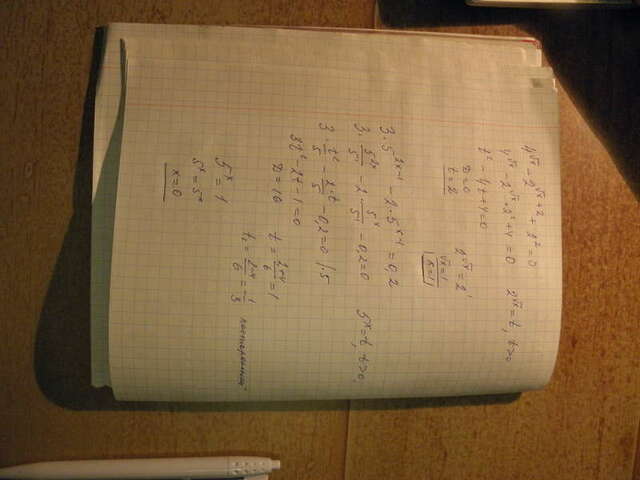 4^√x − 2^√x+2 + 2² = 0
4^√x − 2^√x · 2² + 4 = 0   2^√x = t, t>0
t² − 4t + 4 = 0
D = 0   2^√x = 2¹
t = 2   √x = 1
x = 1
3·5^2x−1 − 2·5^x−1 = 0,2
3· 5^2x/5 − 2 5^x/5 − 0,2 = 0   5^x = t, t>0
3· t²/5 − 2·t/5 − 0,2 = 0 |·5
3t² − 2t − 1 = 0
D = 16   t = 2+4/6 = 1
t₂ = 2−4/6 = −1/3
5^x = 1
5^x = 5^0
x = 0